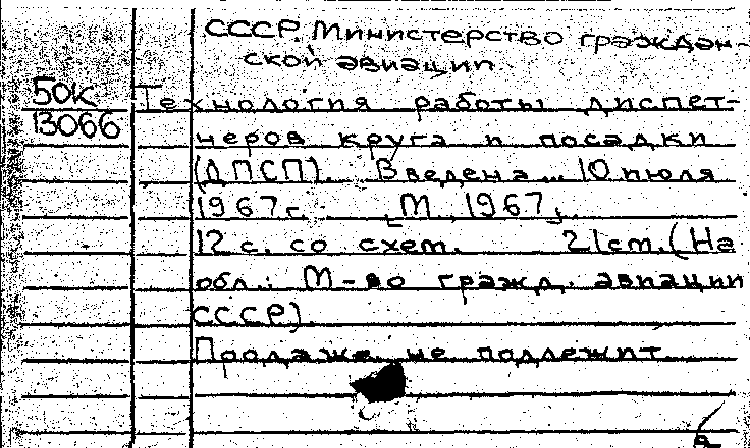 СССР. Министерство граждан-
ской авиации.
50к
13066
Технология работы диспет-
черов круга и посадки
(ДПСП). Введена... 10 июля
1967г. [М., 1967].
12 с. со схем. 21см. (На
обл.: М-во гражд. авиации
СССР).
Продаже не подлежит